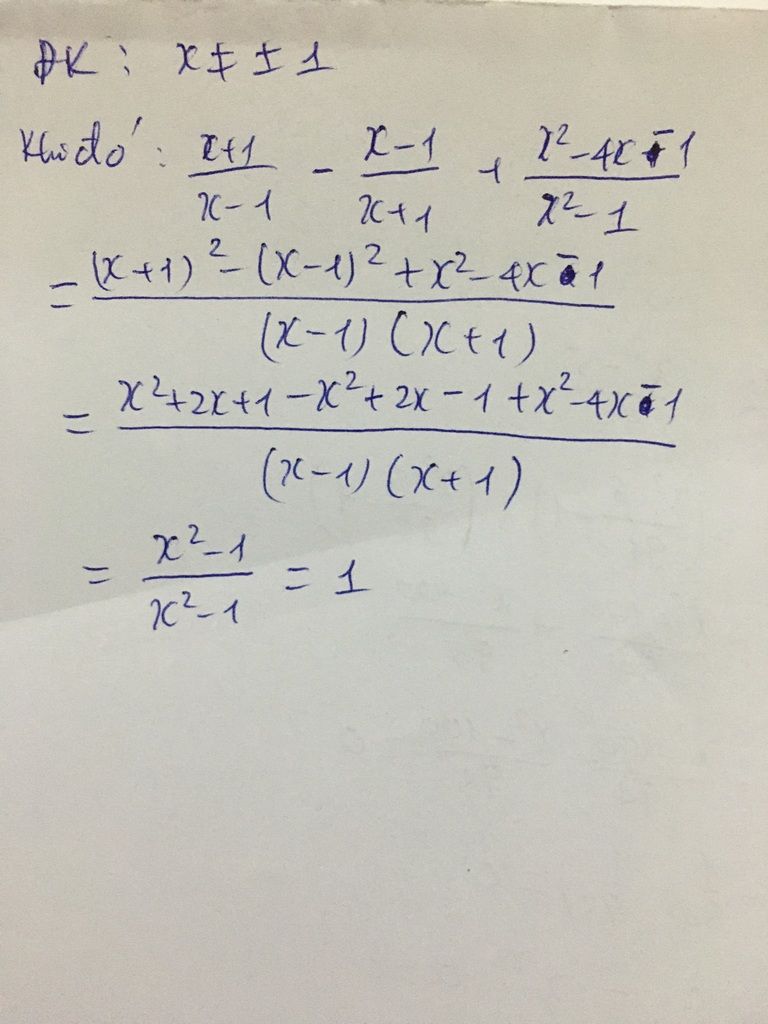 ĐK : x ≠ ± 1
Khi đó : (x+1)/(x-1) - (x-1)/(x+1) + (x²-4x-1)/(x²-1)
= ((x+1)² - (x-1)² + x² - 4x - 1)/((x-1)(x+1))
= (x²+2x+1-x²+2x-1+x²-4x-1)/((x-1)(x+1))
= (x²-1)/(x²-1) = 1